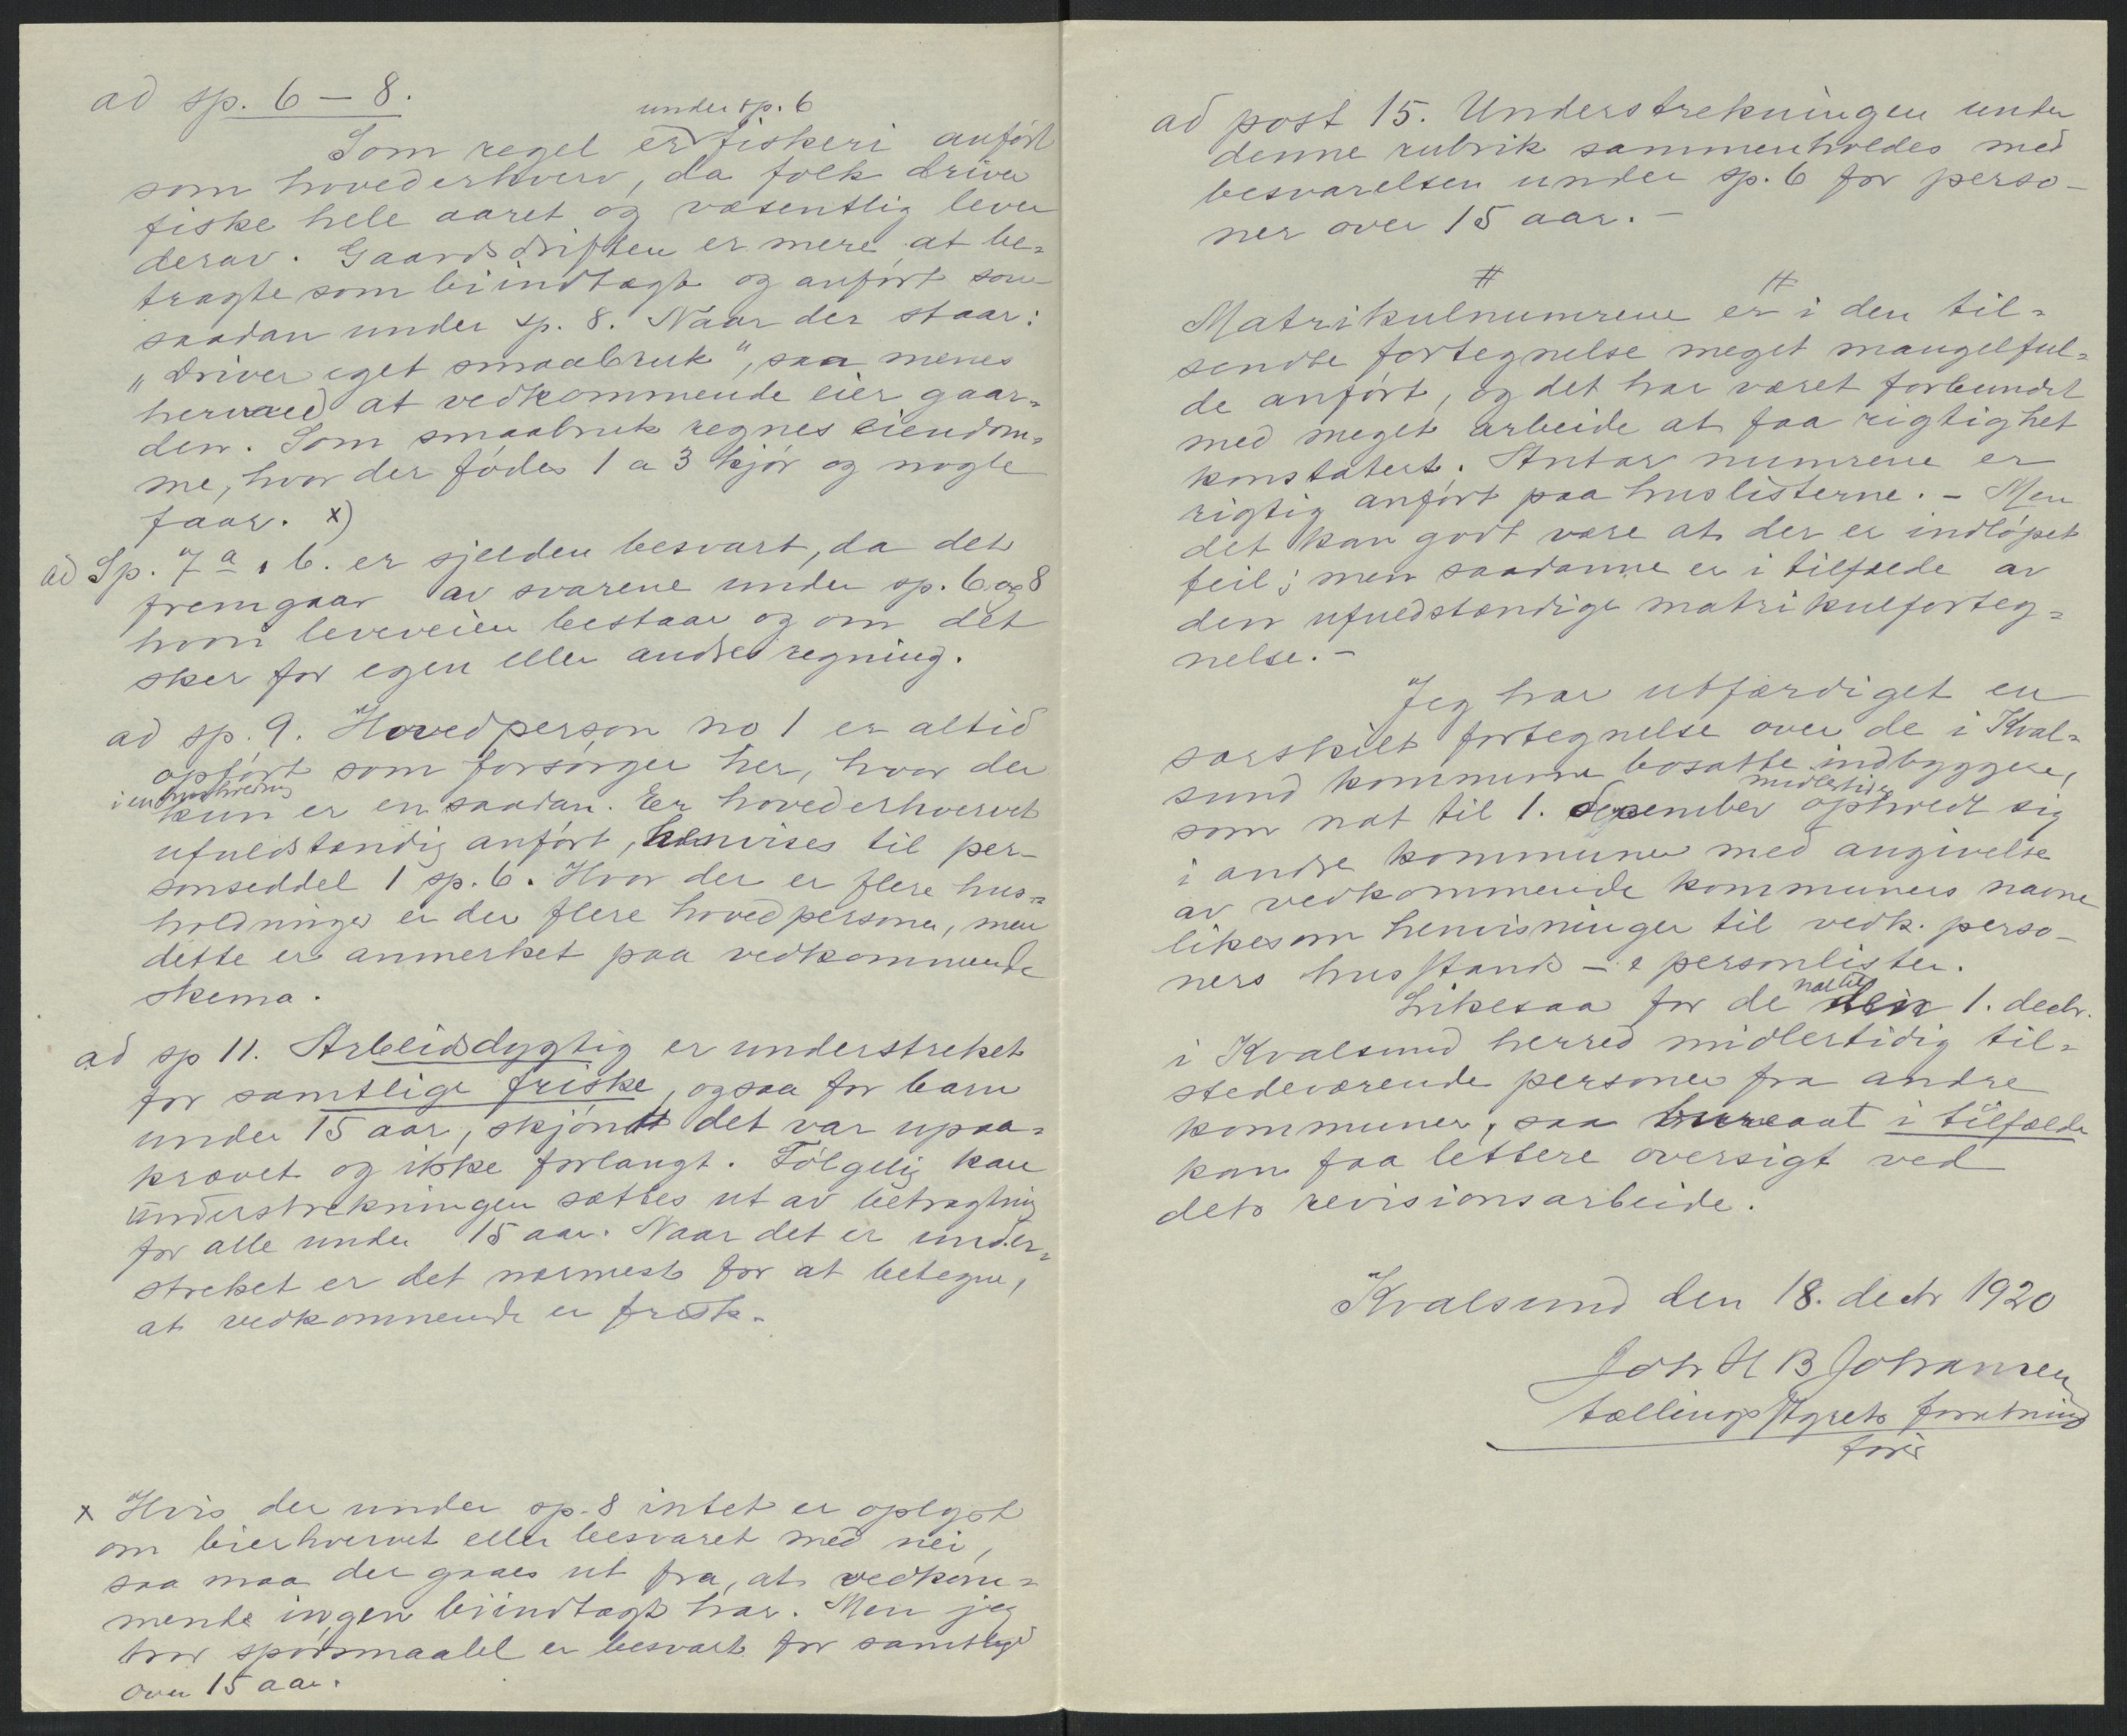 ad sp. 6 – 8.
under sp. 6
Som regel er fiskeri anført
som hovederhverv, da folk driver
fiske hele aaret og væsentlig lever
derav. Gaardsdriften er mere at be=
tragte som biindtægt og anført som
saadan under sp. 8. Naar der staar:
"driver eget smaabruk", saa menes
herved at vedkommende eier gaar=
den. Som smaabruk regnes eiendom=
me, hvor der fødes 1 a 3 kjør og nogle
faar. x)
ad Sp. 7 a, b. er sjelden besvart, da det
fremgaar av svarene under sp. 6 og 8
hvori leveveien bestaar og om det
sker for egen eller andres regning.
ad sp. 9. Hovedperson no 1 er altid
opført som forsørger her, hvor der
i en husholdning
kun er en saadan. Er hovederhvervet
ufuldstændig anført, henvises til per-
sonseddel 1 sp. 6. Hvor der er flere hus=
holdninger er der flere hovedpersoner, men
dette er anmerket paa vedkommende
skema.
ad sp 11. Arbeidsdygtig er understreket
for samtlige friske, ogsaa for barn
under 15 aar, skjøndt det var upaa=
krævet og ikke forlangt. Følgelig kan
understrekningen sættes ut av betragtning
for alle under 15 aar. Naar det er under=
streket er det nærmest for at betegne,
at vedkommende er frisk.
x Hvis der under sp. 8 intet er oplyst
om bierhvervet eller besvaret med nei,
saa maa der gaaes ut fra, at vedkom=
mende ingen biindtægt har. Men jeg
tror spørsmaalet er besvart for samtlige
over 15 aar.
ad post 15. Understrekningen under
denne rubrik sammenholdes med
besvarelsen under sp. 6 for perso-
ner over 15 aar. –
# #
Matrikulnumrene er i den til=
sendte fortegnelse meget mangelful=
de anført, og det har været forbundet
med meget arbeide at faa rigtighet
konstatert. Antar numrene er
rigtig anført paa huslisterne. – Men
det kan godt være at der er indløpet
feil; men saadanne er i tilfælde av
den ufuldstændige matrikulforteg=
nelse. –
Jeg har utfærdiget en
særskilt fortegnelse over de i Kval=
sund kommune bosatte indbyggere,
midlertidig
som nat til 1. december opholdt sig
i andre kommuner med angivelse
av vedkommende kommuners navne
likesom henvisninger til vedk. perso-
ners husstands – & personlister.
nat til
Likesaa for de 1. decbr.
i Kvalsund herred midlertidig til=
stedeværende personer fra andre
kommuner, saa bureaaet i tilfælde
kan faa lettere oversigt ved
dets revisionsarbeide.
Kvalsund den 18. decbr 1920
Joh H B Johansen
tællingsstyrets forretnings
fører